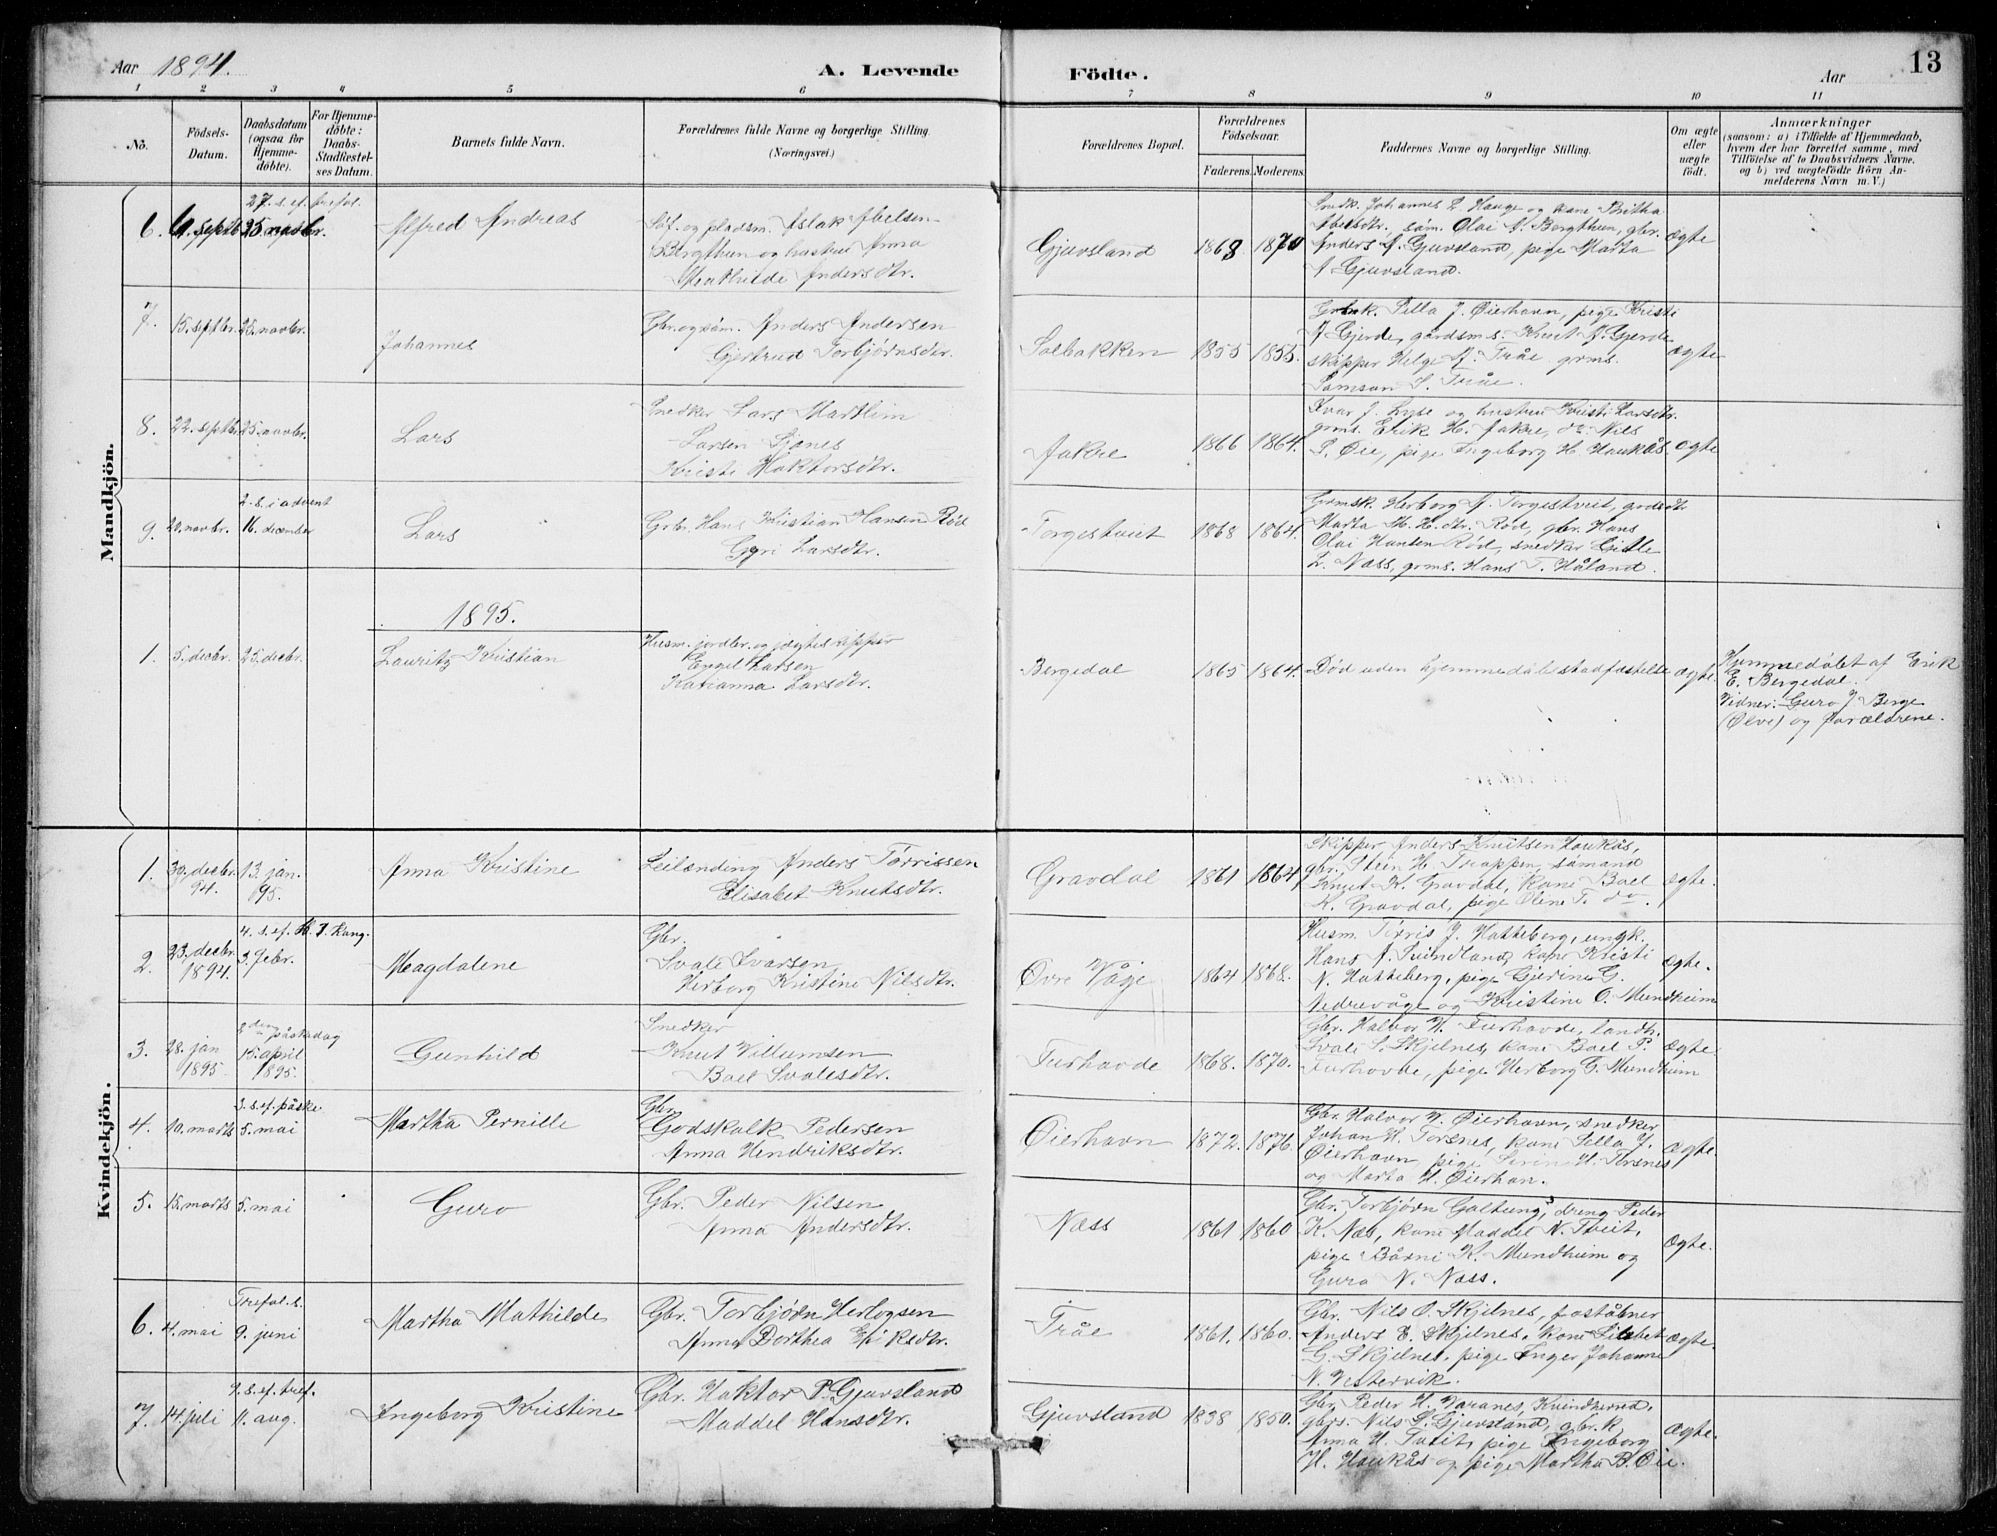 Aar 1894. A. Levende Födte. Aar 13
1 2 3 4 5 6 7 8 9 10 11
No.
Födsels-Datum.
Daabsdatum (ogsaa for Hjemme-døbte).
For Hjemme-døbte: Daabs-Stadfæstel-ses Datum.
Barnets fulde Navn.
Forældrenes fulde Navne og borgerlige Stilling.
(Næringsvei.)
Forældrenes Bopæl.
Forældrenes Födselsaar.
Faderens. Moderens.
Faddernes Navne og borgerlige Stilling.
Om ægte eller uægte født.
Anmærkninger
(saasom: a) i Tilfælde af Hjemmedaab,
hvem der har forrettet samme, med
Tilföielse af to Daabsvidners Navne,
og b) ved uægtefödte Börn An-
melderens Navn m. V.)
Mandkjön.
27. s. ef. trefol.
6. 4. septb 25. novbr. Alfred Andreas
Aslak Abelsen
Bergthun og hustru Anna
Mathilde Andersdtr.
Gjuvsland 1868 1870
Snedk. Johannes L. Hauge og kone Britha
Abelsdtr., søm. Olai A. Bergthun, gbr.
Anders A. Gjuvsland, pige Marta
A Gjuvsland.
ægte
7. 15. septbr. 25. novbr. Johannes
Gbr. og søm. Anders Andersen
Gjertrud Torbjørnsdtr.
Solbakken 1855 1855.
Gbrk. Silla J. Øierhavn, pige Kristi
A Gjerde, gårdsm.s. Knut A. Gjerde
skipper Helge A. Tråe grms.
Samson S. Tråe.
ægte
8. 22. septbr. 25. novbr. Lars
Snedker Lars Martlim
Larsen Sjones
Kristi Haktorsdtr.
Aakre 1866 1864.
Ivar J. Lyse og hustru Kristi Larsdtr.
grms. Erik H. Aakre, do. Nils
P. Øie, pige Ingeborg H. Haukås.
ægte
2. s. i advent
9. 20. novbr. 16. december Lars
Grb. Hans Kristian Hansen Rød
Gyri Larsdtr.
Torgestveit 1868 1864.
Grmsk. Herborg A. Torgestveit, godsdtr
Marta M. H. dtr. Rød, gbr. Hans
Olai Hansen Rød, snedker Gitle
L. Næss, grms. Hans T. Håland.
ægte
1895.
1. 5. decbr. 25. decbr. Lauritz Kristian
Husm. jordbr. og jægtskipper
Engel Larsen
Katianna Larsdtr.
Bergedal 1865 1864.
Død uden hjemmedåbsstadfæstelse
ægte.
Hjemmedøbt af Erik
E. Bergedal.
Vidner: Guro J. Berge
(Ølve) og forældrene.
Kvindekjön.
1. 30. decbr. 94. 13. jan. 95. Anna Kristine
Leilending Anders Tørrissen
Elisabet Knutsdtr.
Gravdal 1861 1864
Skipper Anders Knutsen Haukås,
gbr. Stein H. Trappen, sømand
Knut K. Gravdal, kone Boel
K. Gravdal, pige Oline T. do.
ægte.
4. s. ef. H. 3 Kong.
2. 23. decbr. 1894. 3. febr. Magdalene
Gbr.
Svale Ivarsen
Herborg Kristine Nilsdtr.
Øvre Våge 1864 1868.
Husm. Tørris J. Hatteberg, ungk.
Hans A. Tvindland, kone Kristi
N. Hatteberg, pige Gjerine G.
Nedrevåge og Kristine O. Mundheim
ægte.
2den påskedag
3. 28. jan 1895 15. april 1895. Gunhild
Snedker
Knut Villumsen
Boel Svalesdtr.
Furhovde 1868. 1870.
Gbr. Halvor W. Furhovde, landh.
Svale S. Skjelnes, kone Boel P.
Furhovde, pige Herborg G. Mundheim
ægte
3. s. ef. påske
4. 10. marts 5. mai Martha Pernille
Gbr.
Godskalk Pedersen
Anna Hendriksdtr.
Øierhavn 1872. 1876.
Gbr. Halvor W. Øierhavn, snedker
Johan H. Torsnes, kone Silla J.
Øierhavn, pige Serine H. Torsnes
og Marta H. Øierhan.
ægte.
5. 15. marts 5. mai Guro
Gbr. Peder Nilsen
Anna Andersdtr.
Næss 1861 1860
Gbr. Torbjørn Galtung, dreng Peder
K. Næs, kone Maddel N. Tveit,
pige Bårni K. Mundheim og
Guro N. Næss.
ægte.
Trefol. s.
6. 4. mai 9. juni Martha Mathilde
Gbr. Torbjørn Herlogsen
Anna Dorthea Eriksdtr.
Tråe 1861. 1860.
Gbr. Nils O. Skjelnes, postålner
Anders E. Skjelnes, kone Lisbet
G. Skjelnes, pige Inger Johanne
N. Vestervik.
ægte.
9. s. ef. tref.
7. 14. juli 11. aug. Ingeborg Kristine
Gbr. Haktor P. Gjuvsland
Maddel Hansdtr.
Gjuvsland 1838 1850.
Gbr. Peder H. Varanes, Kvindherred,
gbrs. Nils S. Gjuvsland, gbr.k.
Anna H. Tveit, pige Ingeborg
H. Haukås og pige Martha B. Øie.
ægte.